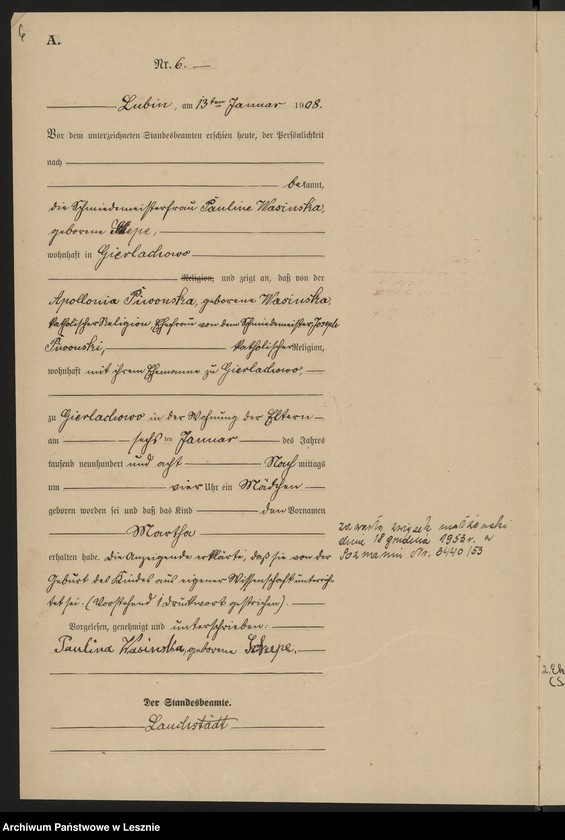 6
A.
Nr. 6.
Lubin, am 13ten Januar 1908.
Vor dem unterzeichneten Standesbeamten erschien heute, der Persönlichkeit
nach
bekannt,
die Schmiedemeisterfrau Pauline Wasinska,
geborene Skepe,
wohnhaft in Gierlachowo
Religion, und zeigt an, daß von der
Apollonia Piwonska, geborene Wasinska,
katholischer Religion, Ehefrau von dem Schmiedemeister Joseph
Piwonski, katholischer Religion,
wohnhaft mit ihrem Ehemanne zu Gierlachowo,
zu Gierlachowo in der Wohnung der Eltern
am sechsten Januar des Jahres
tausend neunhundert und acht Nachmittags
um vier Uhr ein Mädchen
geboren worden sei und daß das Kind den Vornamen
Martha
erhalten habe. Die Anzeigende erklärte, daß sie von der
Geburt des Kindes aus eigener Wissenschaft unterrich-
tet sei. (Vorstehend 1 Druckwort gestrichen).
Vorgelesen, genehmigt und unterschrieben:
Paulina Wasinska, geborene
Der Standesbeamte.
Lauchstädt
zawarła związek małżeński
dnia 18 grudnia 1953 r. w
Poznaniu Nr. 3440/53
2. Eh
Archiwum Państwowe w Lesznie